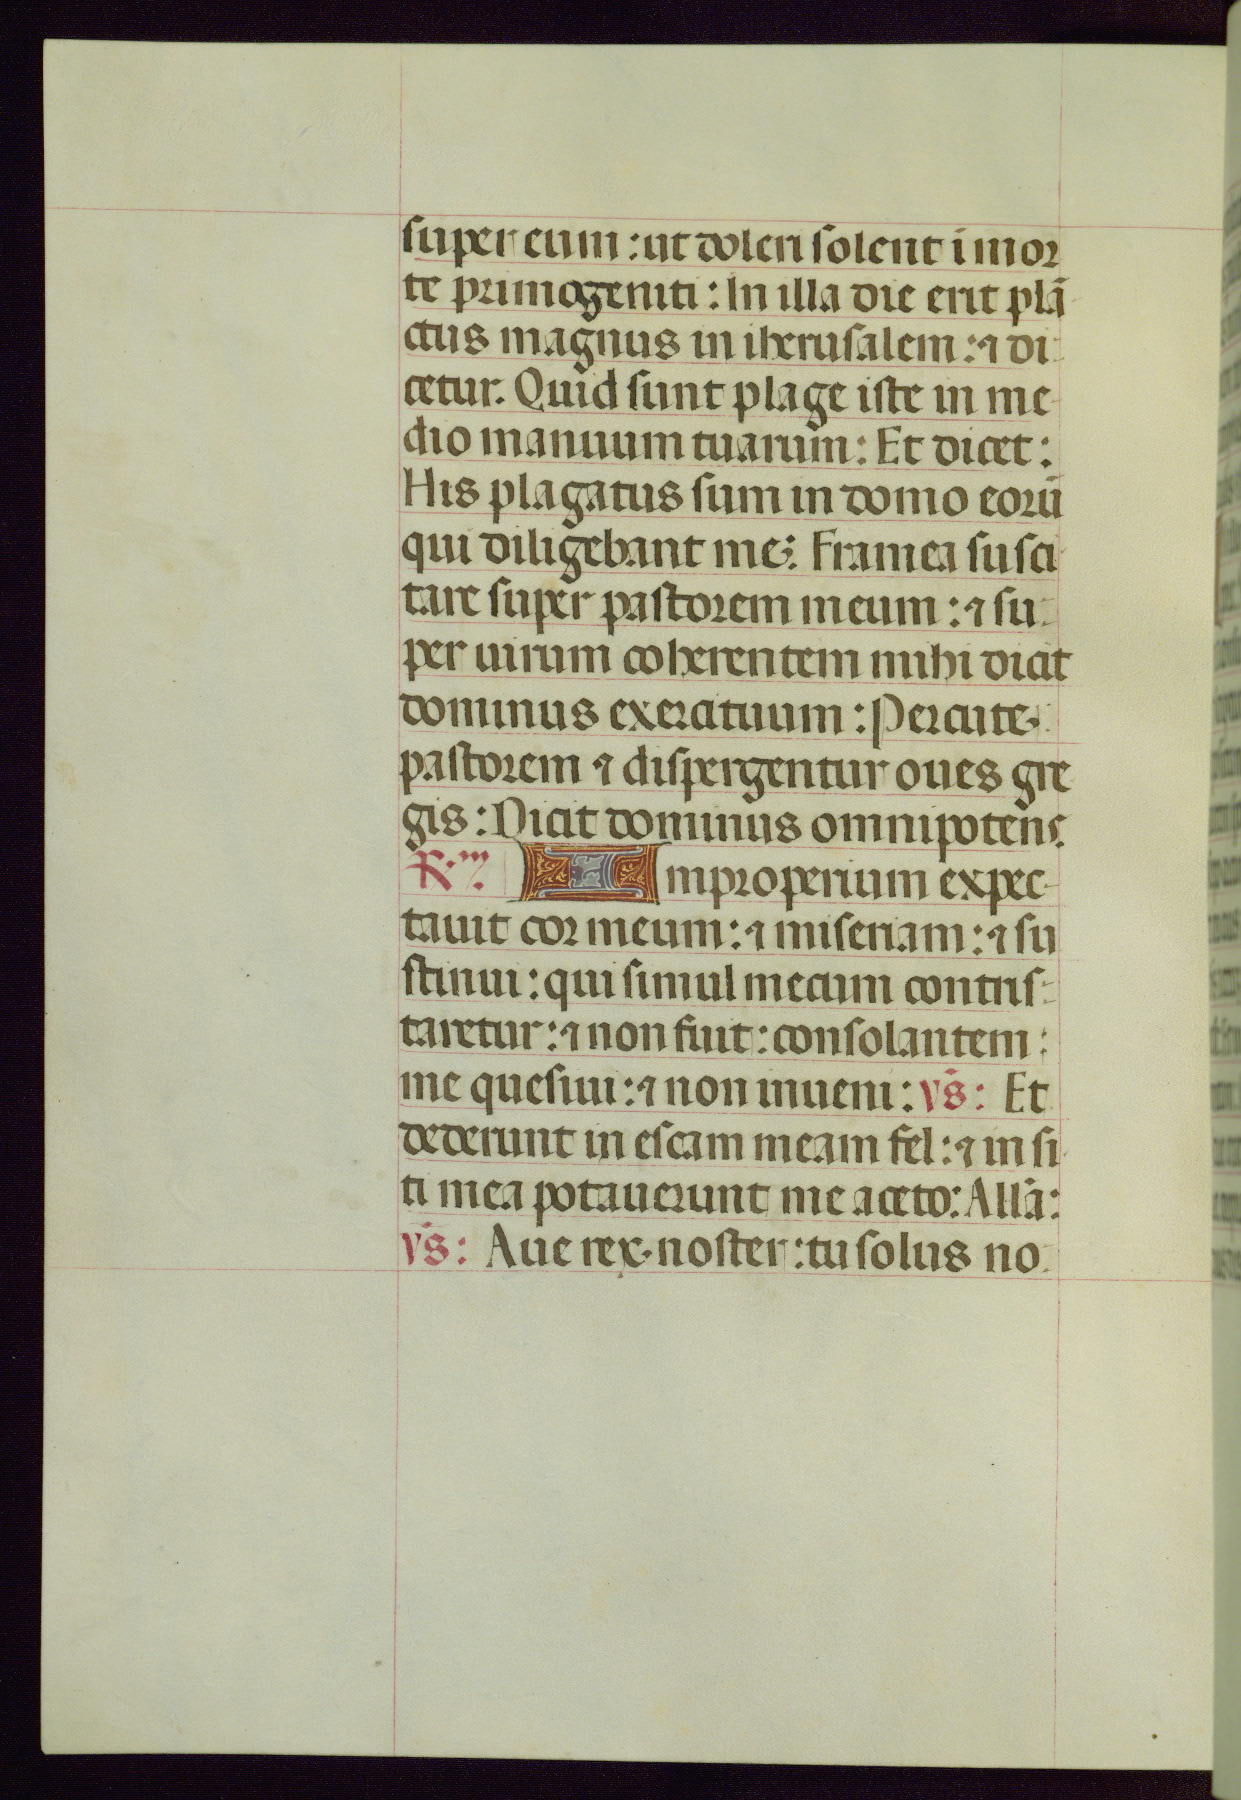 super eum : ut doleri solent ī mor
te primogeniti : In illa die erit plā
ctus magnus in iherusalem : ⁊ di
cetur. Quid sunt plage iste in me
dio manuum tuarum : Et dicet :
His plagatus sum in domo eorū
qui diligebant me; Framea susci
tare super pastorem meum : ⁊ su
per uirum coherentem mihi dicit
dominus exercituum : Percute
pastorem ⁊ dispergentur oues gre
gis : Dicit dominus omnipotens.
R. Improperium expec-
tauit cor meum : ⁊ miseriam : ⁊ su
stinui : qui simul mecum contris-
taretur : ⁊ non fuit : consolantem :
me quesiui : ⁊ non inueni : v̄s : Et
dederunt in escam meam fel : ⁊ in si
ti mea potauerunt me aceto : Allā :
v̄s : Aue rex noster : tu solus no